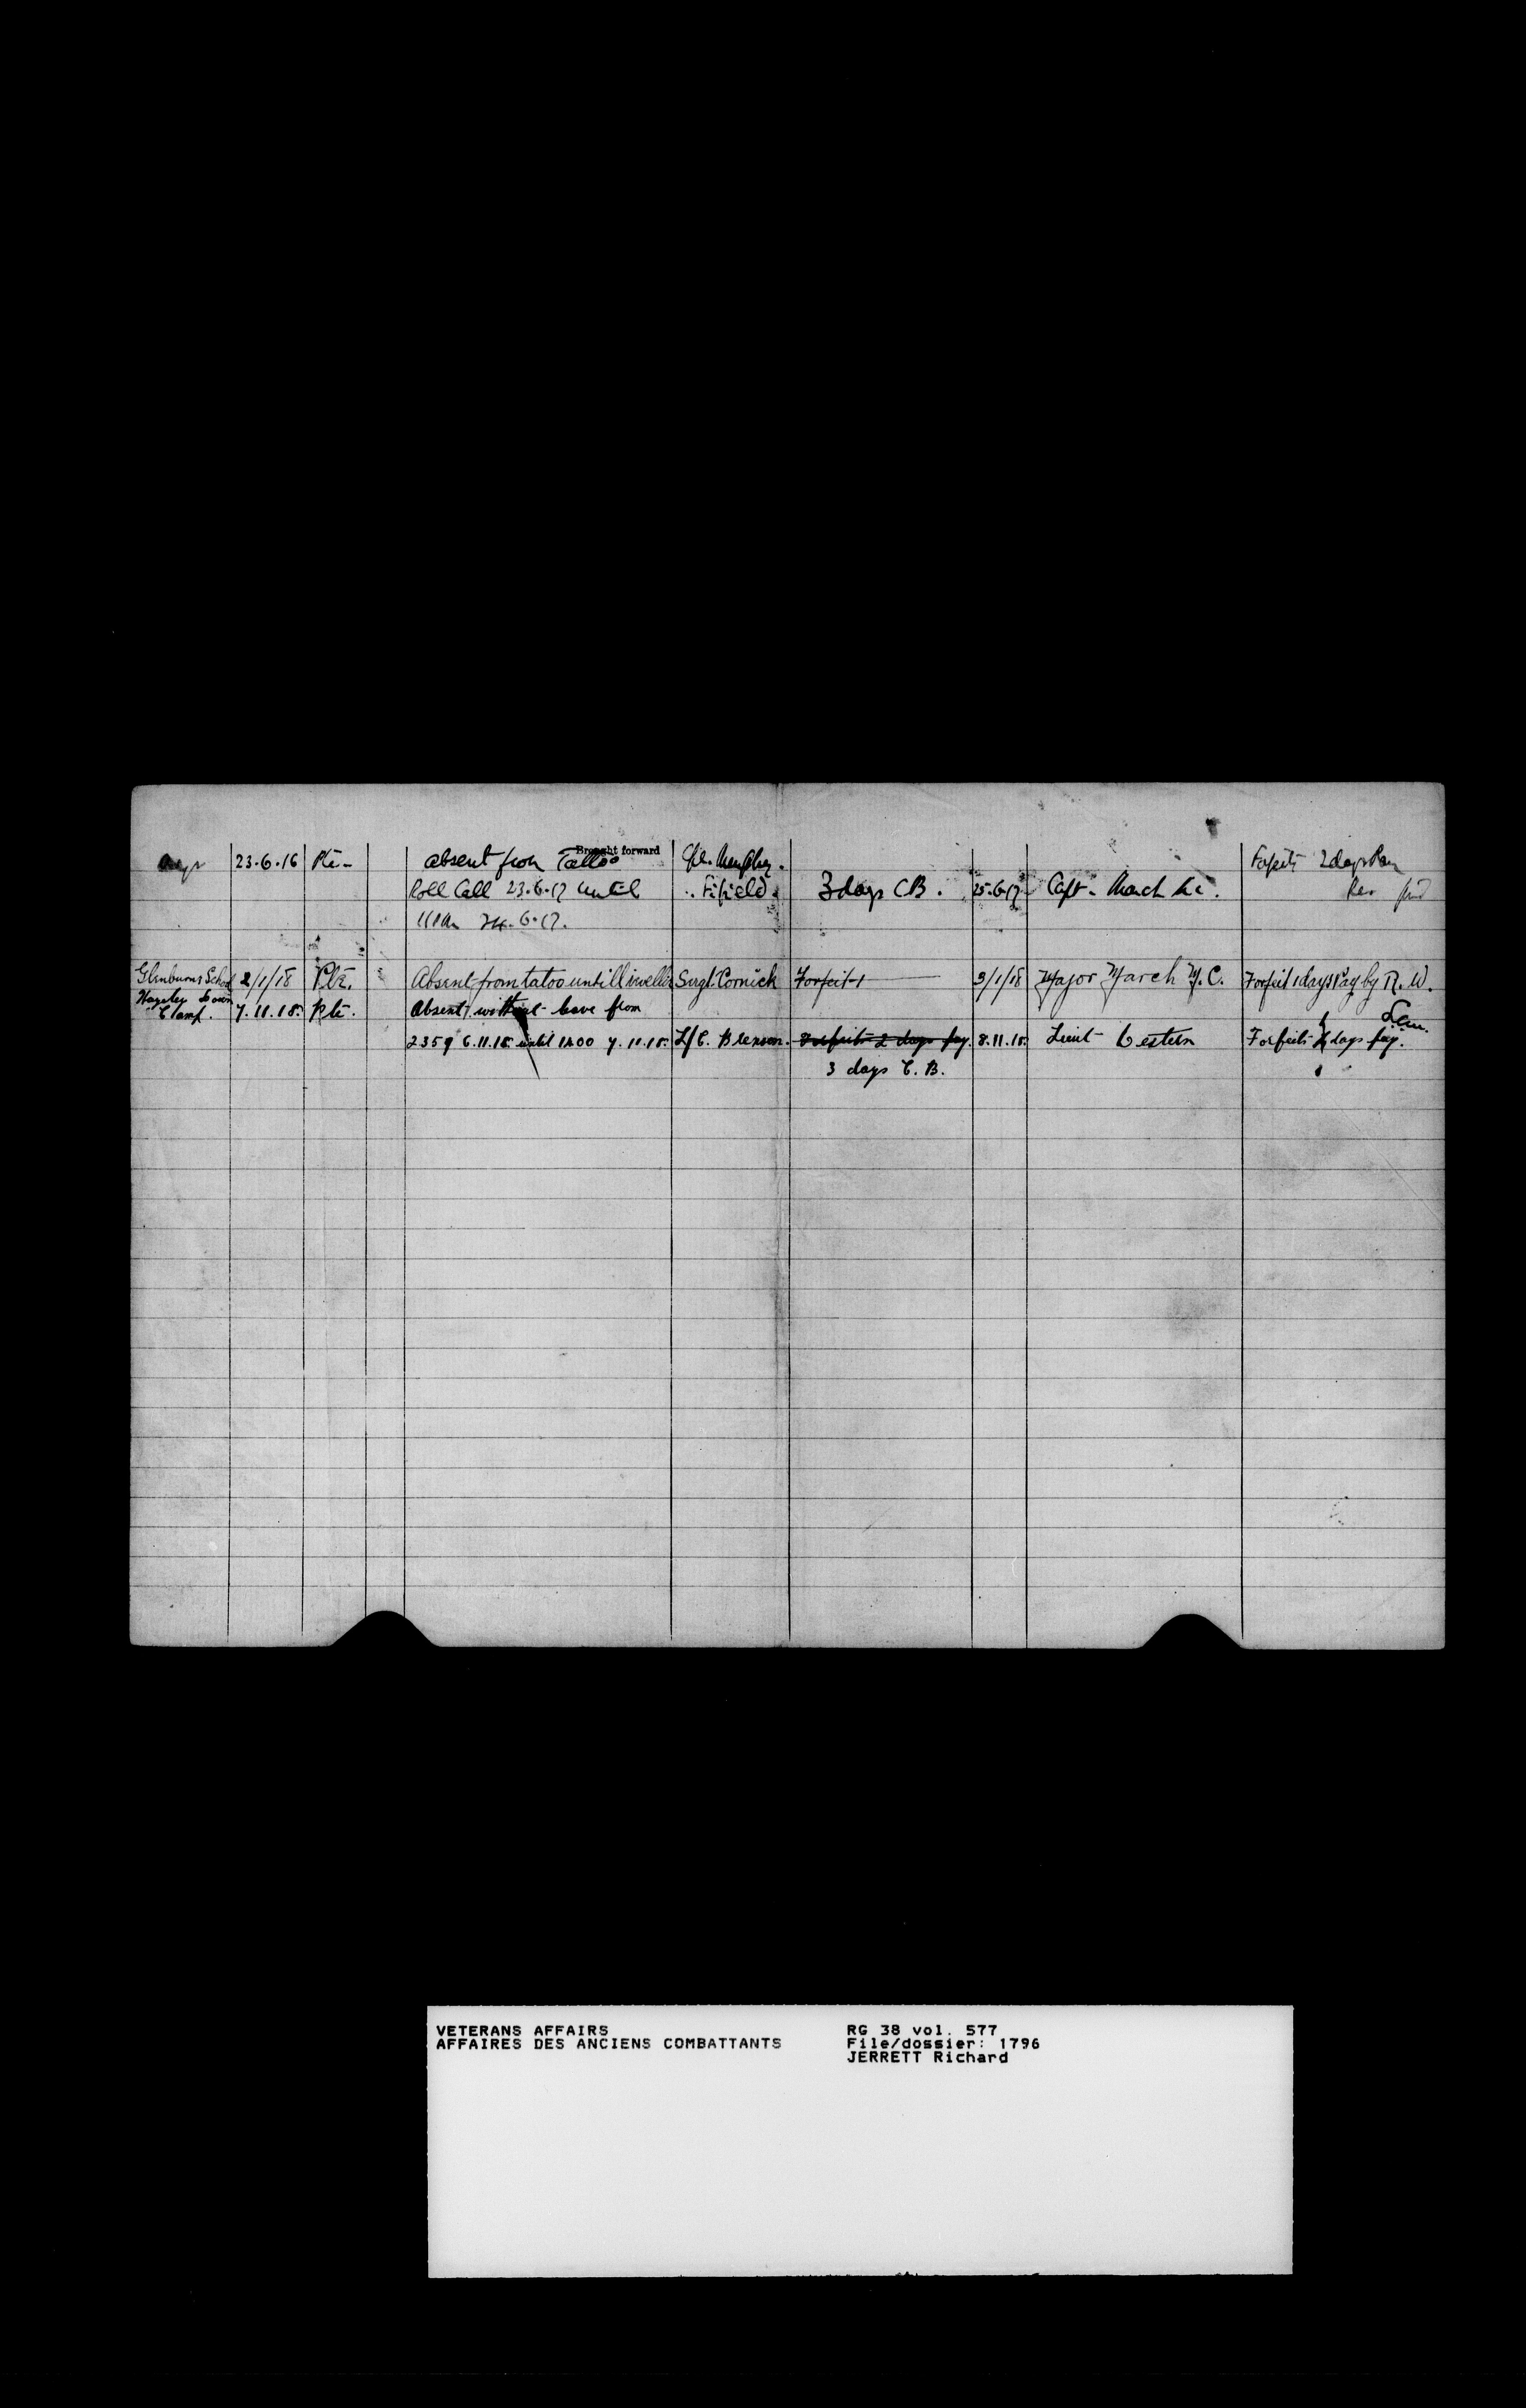 Brought forward
Ayr 23.6.16 Pte- absent from Tattoo Cpl. Forfeits 2 days Pay
Roll Call 23.6.17 until .. Fifield. 3 days CB. 25.6.17 Capt. March
24.6.17.
Glenburns School 2/1/18 Pte. Absent from tatoo untill Sergt. Cornick Forfeit 1 3/1/18 Major March M.C. Forfeit 1 days Pay by R.W.
Hazeley Down
Camp. 7.11.18. Pte. Absent without leave from
2359 6.11.18 until 7.11.18. L/C. Forfeits 2 days pay. 8.11.18. Lieut Forfeits days pay.
3 days C.B.
VETERANS AFFAIRS
AFFAIRES DES ANCIENS COMBATTANTS
RG 38 vol. 577
File/dossier: 1796
JERRETT Richard